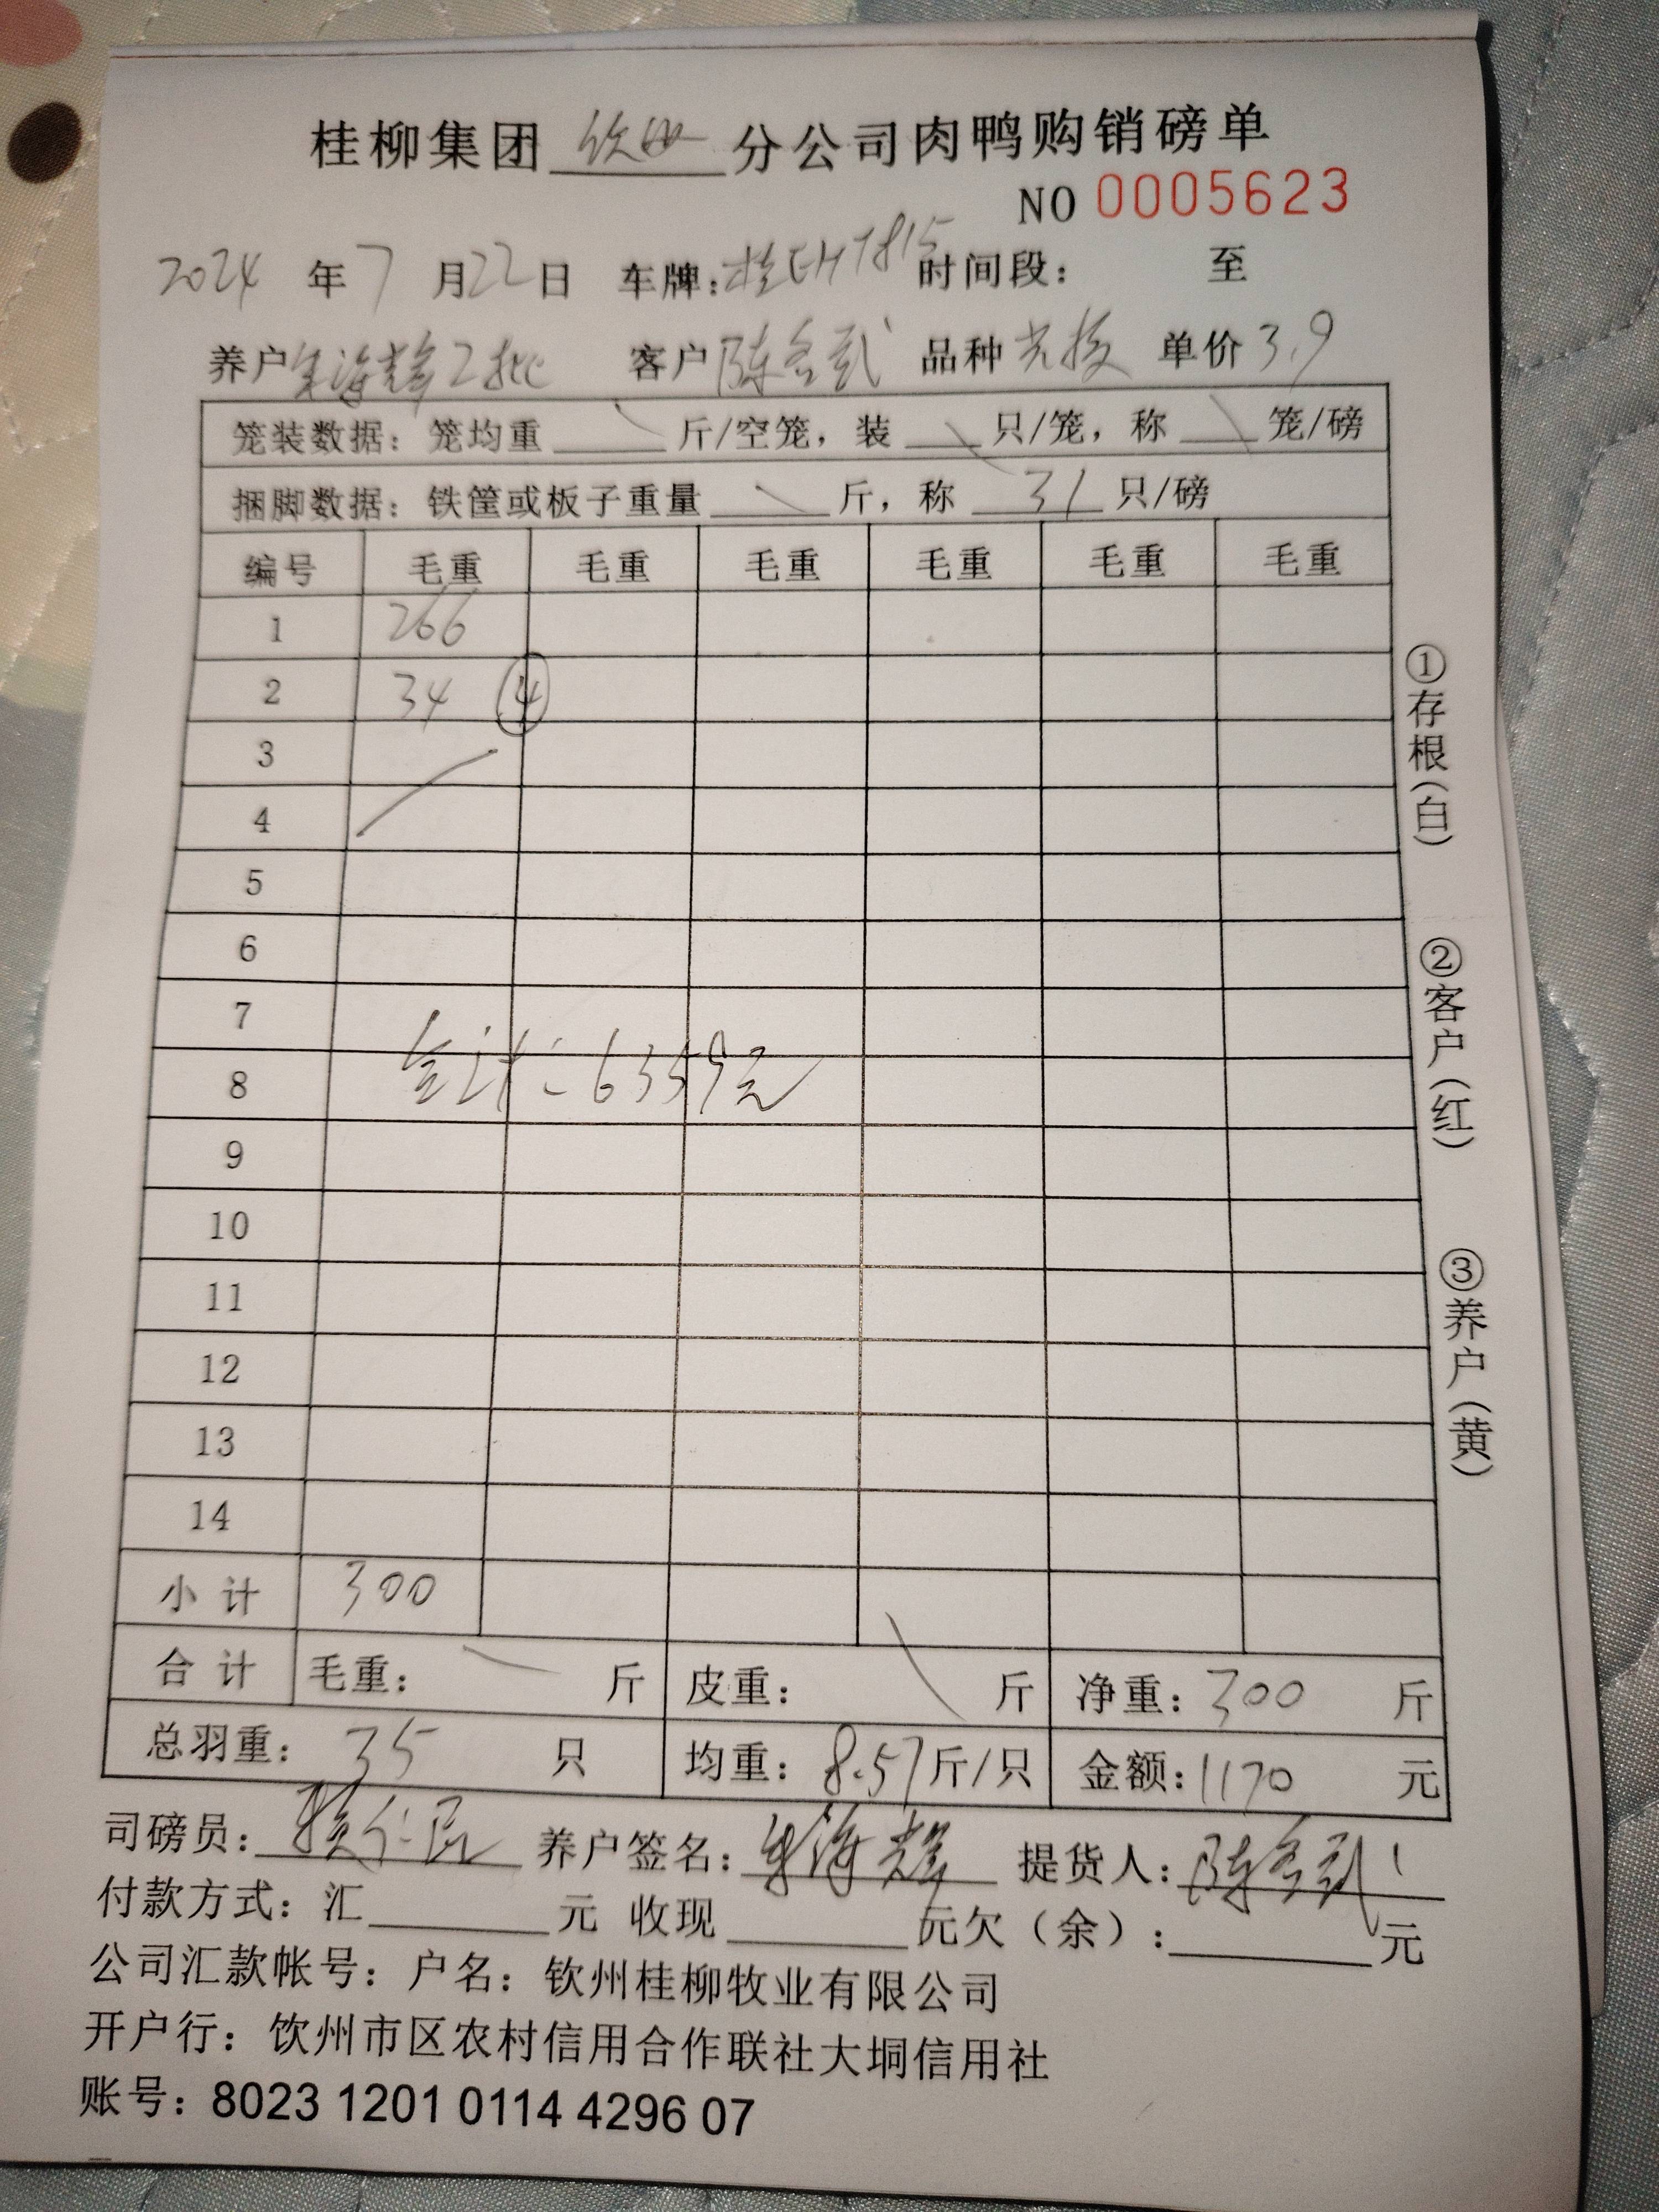 桂柳集团 钦州 分公司肉鸭购销磅单
NO 0005623
2024 年 7 月 22 日 车牌: 桂EH7815 时间段: 至
养户 朱海辉2批 客户 陈名贰 品种 单价 3.9
笼装数据: 笼均重 斤/空笼, 装 只/笼, 称 笼/磅
捆脚数据: 铁筐或板子重量 斤, 称 31 只/磅
编号 毛重 毛重 毛重 毛重 毛重 毛重
1 266
2 34 ④
3
4
5
6
7
8 合计: 6359元
9
10
11
12
13
14
小计 300
合计 毛重: 斤 皮重: 斤 净重: 300 斤
总羽重: 35 只 均重: 8.57 斤/只 金额: 1170 元
司磅员: 养户签名: 朱海辉 提货人: 陈名贰
付款方式: 汇 元 收现 元欠(余): 元
公司汇款帐号: 户名: 钦州桂柳牧业有限公司
开户行: 饮州市区农村信用合作联社大垌信用社
账号: 8023 1201 0114 4296 07
①存根(白)
②客户(红)
③养户(黄)